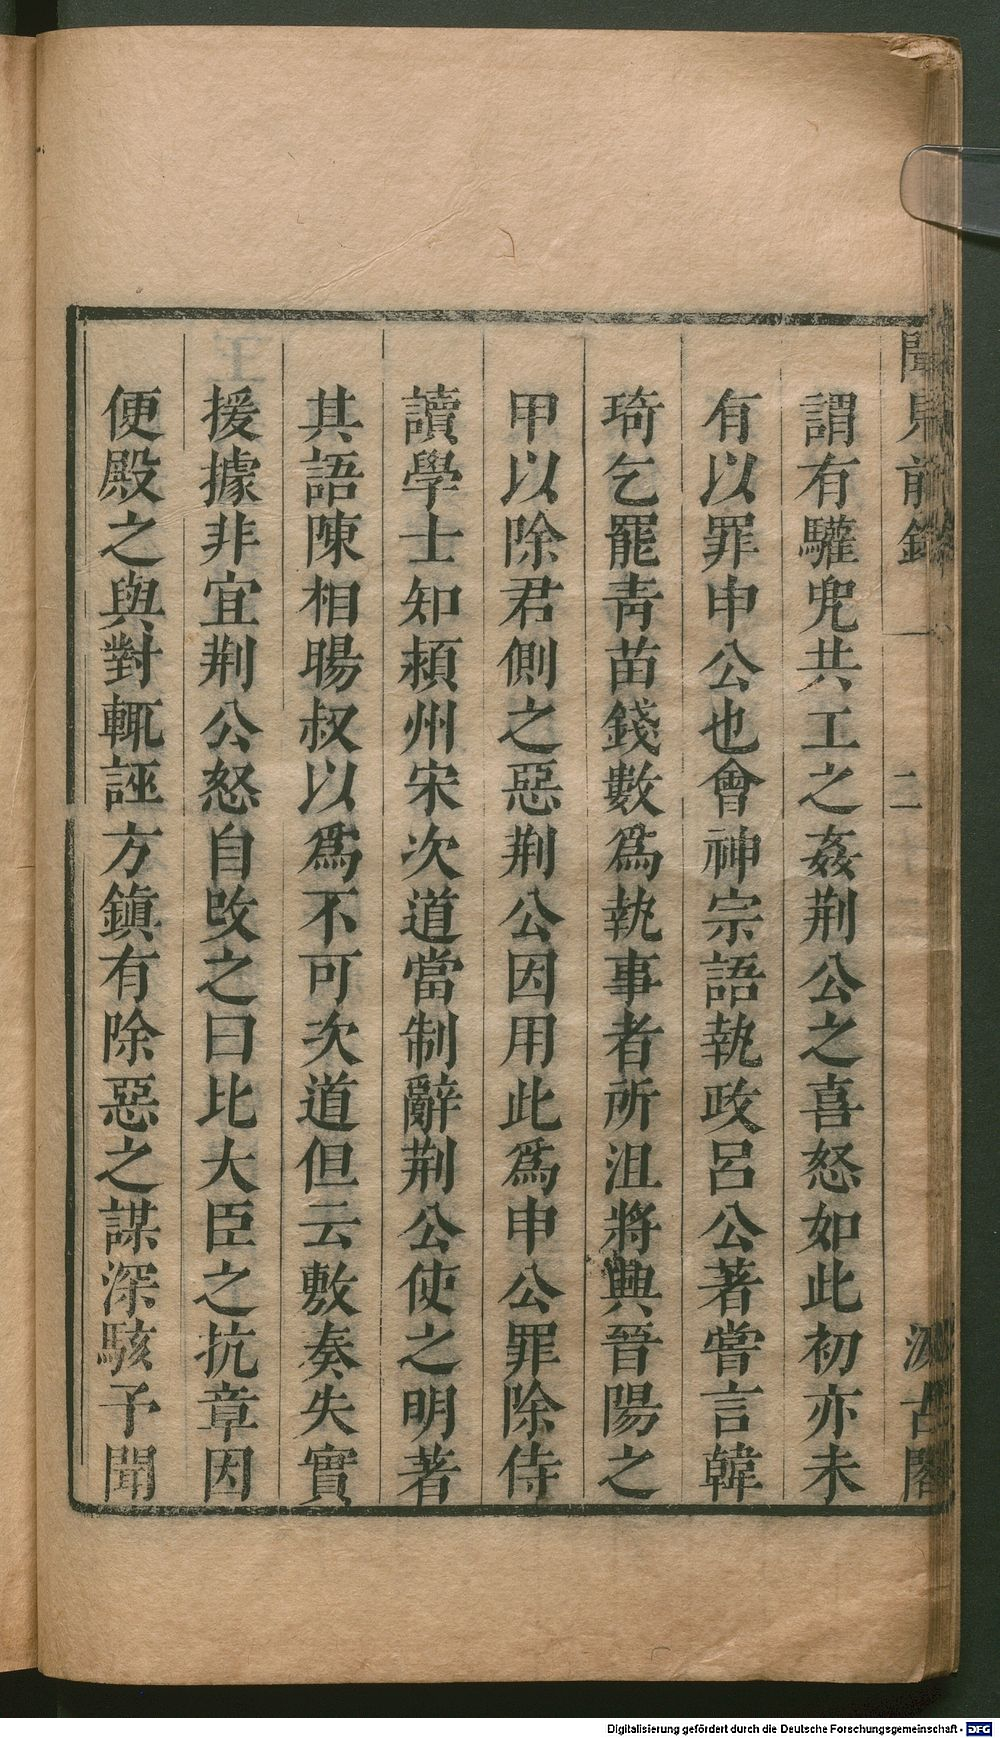 聞見前錄 一 二 汲古閣
謂有驩兜共工之姦荆公之喜怒如此初亦未
有以罪申公也會神宗語執政呂公著嘗言韓
琦乞罷青苗錢數爲執事者所沮將興晉陽之
甲以除君側之惡荆公因用此爲申公罪除侍
讀學士知頴州宋次道當制辭荆公使之明著
其語陳相暘叔以爲不可次道但云敷奏失實
援據非宜荆公怒自改之曰比大臣之抗章因
便殿之與對輒誣方鎭有除惡之謀深駭予聞
Digitalisierung gefördert durch die Deutsche Forschungsgemeinschaft - DFG